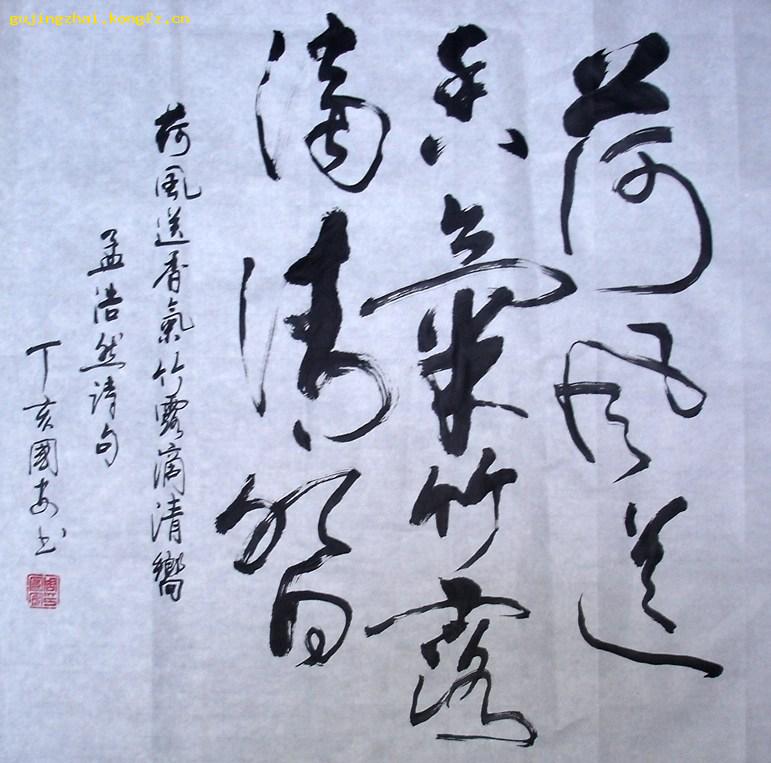 gujingzhai.kongfz.cn
荷风送
香氣竹露
滴清響
荷風送香氣竹露滴清響
孟浩然詩句
丁亥國安书